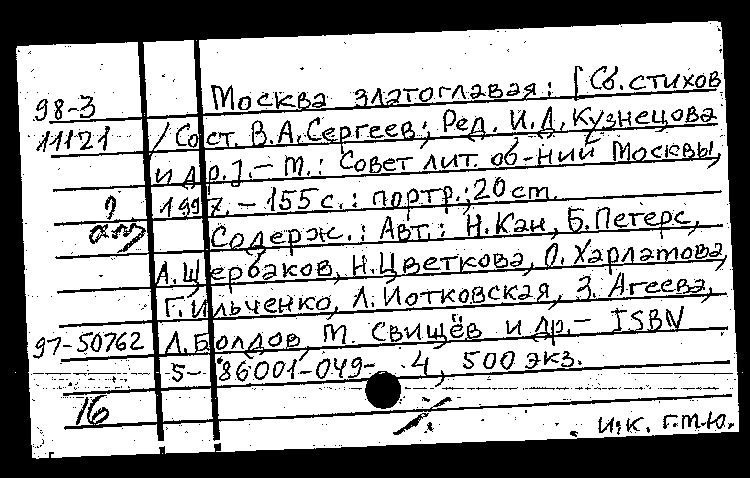 98-3 Москва златоглавая: [Сб. стихов
11121 /Сост. В.А.Сергеев; Ред. И.Д. Кузнецова
и др.]. - М.: Совет лит. об-ний Москвы,
1997. - 155 с.: портр.; 20 см.
Содерж.: Авт.: Н.Кан, Б.Петерс,
А.Щербаков, Н.Цветкова, О. Харламова,
Г.Ильченко, Л.Йотковская, З. Агеева,
97-50762 Л.Болдов, М. Свищёв и др. - ISBN
5-86001-049-4, 500 экз.
16
И.К. Г.М.Ю.